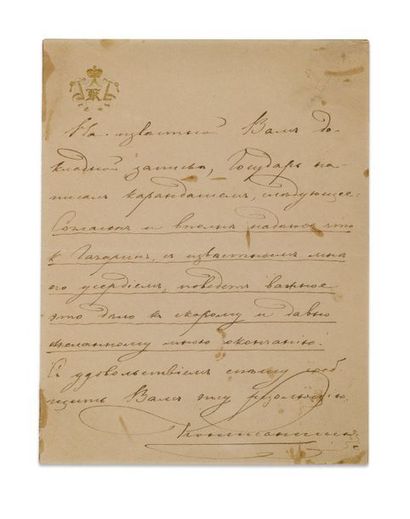 На извѣстной Вамъ до-
кладной запискѣ, Государь на-
писалъ карандашемъ, слѣдующее:
Согласенъ и вполнѣ надѣюсь что
К. Гагаринъ, съ извѣстнымъ мнѣ
его усердіемъ, поведетъ важное
это дѣло къ скорому и давно
желанному мною окончанію.
Съ удовольствіемъ спѣшу сооб-
щить Вамъ эту резолюцію.
Константинъ